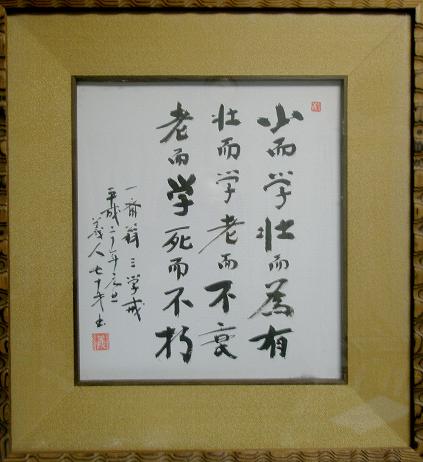 少而学壮而為有
壮而学老而不衰
老而学死而不朽
一斎翁三学戒
平成二十年元旦
義人七十才書